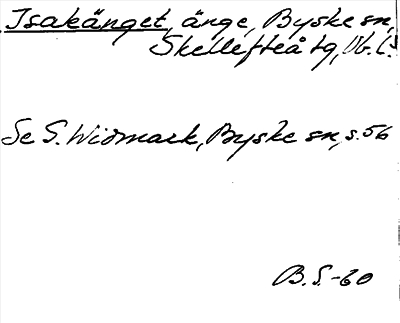 Isakänget, änge, Byske sn,
Skellefteå tg, Vb. l.
Se S. Widmark, Byske sn, s. 56
B.S.-60